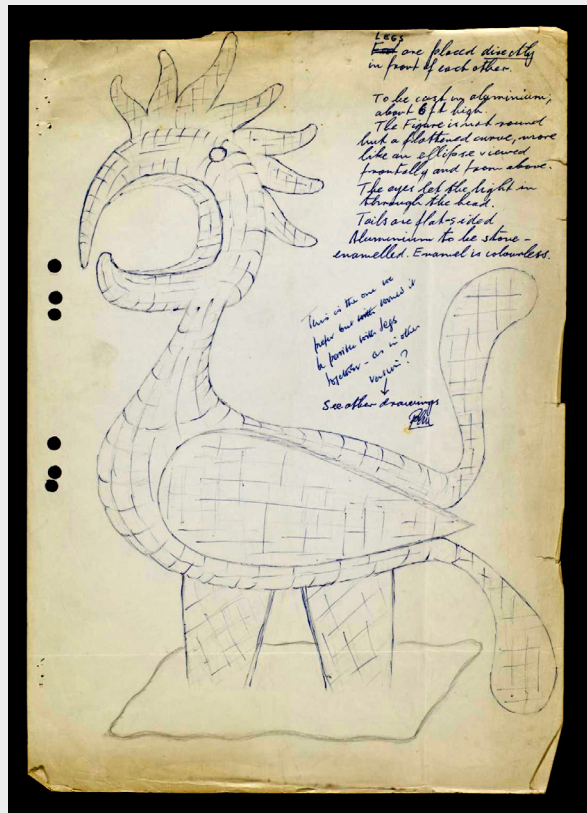 LEGS
are placed directly
in front of each other.
To be cast in aluminium,
about 6 ft high.
The Figure is not round
but a flattened curve, more
like an ellipse viewed
frontally and from above.
The eyes let the light in
through the head.
Tails are flat-sided
Aluminium to be stove-
enamelled. Enamel is colourless.
This is the one we
prefer but would it
be possible with legs
together – as in other
version?
See other drawings